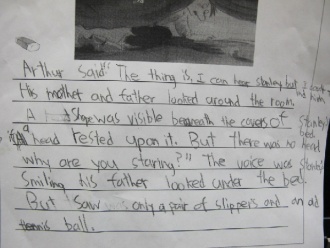 Arthur said "The thing is, I can hear Stanley but I can't find him
His mother and father looked around the room.
A shape was visible beneath the covers of Stanley's bed
if a head rested upon it. But there was no head
why are you staring?" The voice was Stanley's
Smiling his father looked under the bed.
But saw only a pair of slippers and an old
tennis ball.